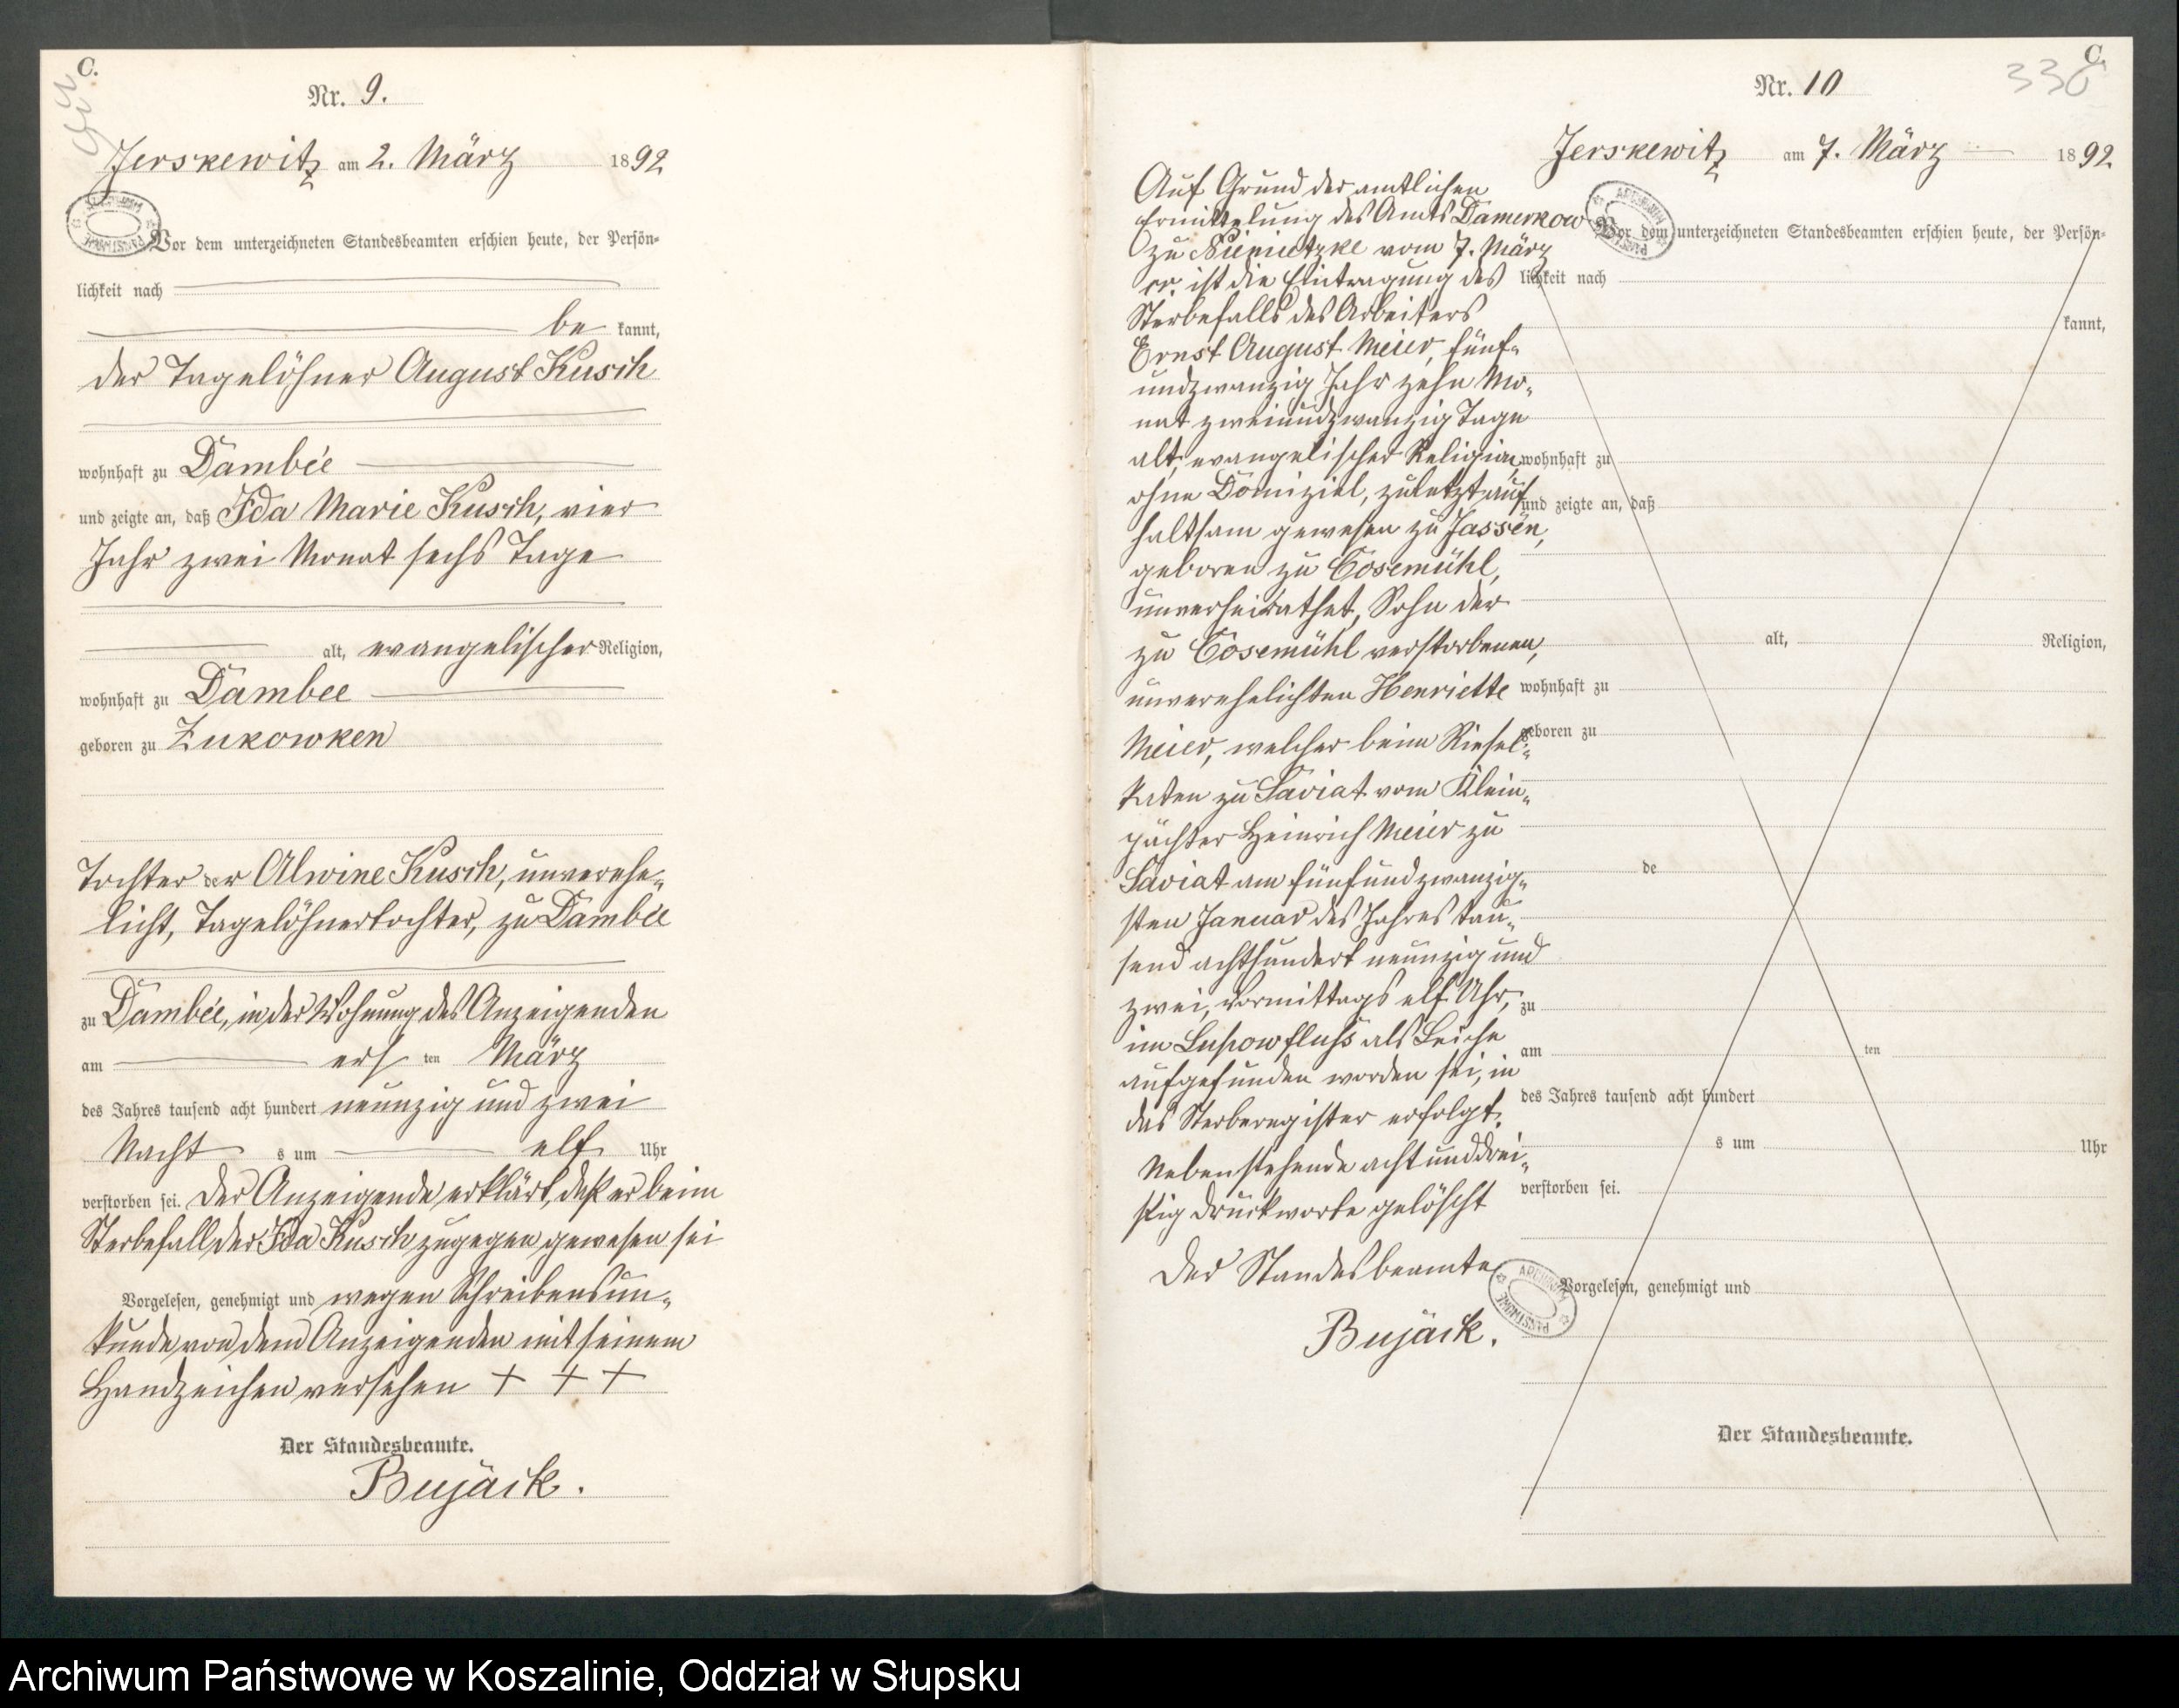 C.
Nr. 9.
Jerskewitz am 2. März 1892
Vor dem unterzeichneten Standesbeamten erschien heute, der Persön-
lichkeit nach
be kannt,
der Tagelöhner August Kusch
wohnhaft zu Dambée
und zeigte an, daß Ida Marie Kusch, vier
Jahr zwei Monat sechs Tage
alt, evangelischer Religion,
wohnhaft zu Dambee
geboren zu Zukowken
Tochter der Alwine Kusch, unverehe-
licht, Tagelöhnertochter, zu Dambée
zu Dambée, in der Wohnung des Anzeigenden
am ers ten März
des Jahres tausend acht hundert neunzig und zwei
Nacht s um elf Uhr
verstorben sei. Der Anzeigende erklärt, daß er beim
Sterbefall der Ida Kusch zugegen gewesen sei
Vorgelesen, genehmigt und wegen Schreibensun-
kunde von dem Anzeigenden mit seinem
Handzeichen versehen + + +
Der Standesbeamte.
Bujäck.
C.
330
Nr. 10
Jerskewitz am 7. März 1892
Auf Grund der amtlichen
Ermittelung des Amts Damerkow
zu Niemietzke vom 7. März
cr. ist die Eintragung des
Sterbefalls des Arbeiters
Ernst August Meier, fünf-
undzwanzig Jahr zehn Mo-
nat zweiundzwanzig Tage
alt, evangelischer Religion,
ohne Domizil, zuletzt auf
haltsam gewesen zu Jassen,
geboren zu Cosemühl,
unverheirathet, Sohn der
zu Cosemühl verstorbenen,
unverehelichten Henriette
Meier, welcher beim Riesel-
katen zu Saviat vom Klein-
pächter Heinrich Meier zu
Saviat am fünfundzwanzig-
sten Januar des Jahres tau-
send achthundert neunzig und
zwei, Vormittags elf Uhr,
im Lupowfluß als Leiche
aufgefunden worden sei, in
das Sterberegister erfolgt.
Nebenstehende acht und drei-
ßig Druckworte gelöscht
Der Standesbeamte
Bujäck.
Vor dem unterzeichneten Standesbeamten erschien heute, der Persön-
lichkeit nach
kannt,
wohnhaft zu
und zeigte an, daß
alt, Religion,
wohnhaft zu
geboren zu
de
zu
am ten
des Jahres tausend acht hundert
s um Uhr
verstorben sei.
Vorgelesen, genehmigt und
Der Standesbeamte.
Archiwum Państwowe w Koszalinie, Oddział w Słupsku